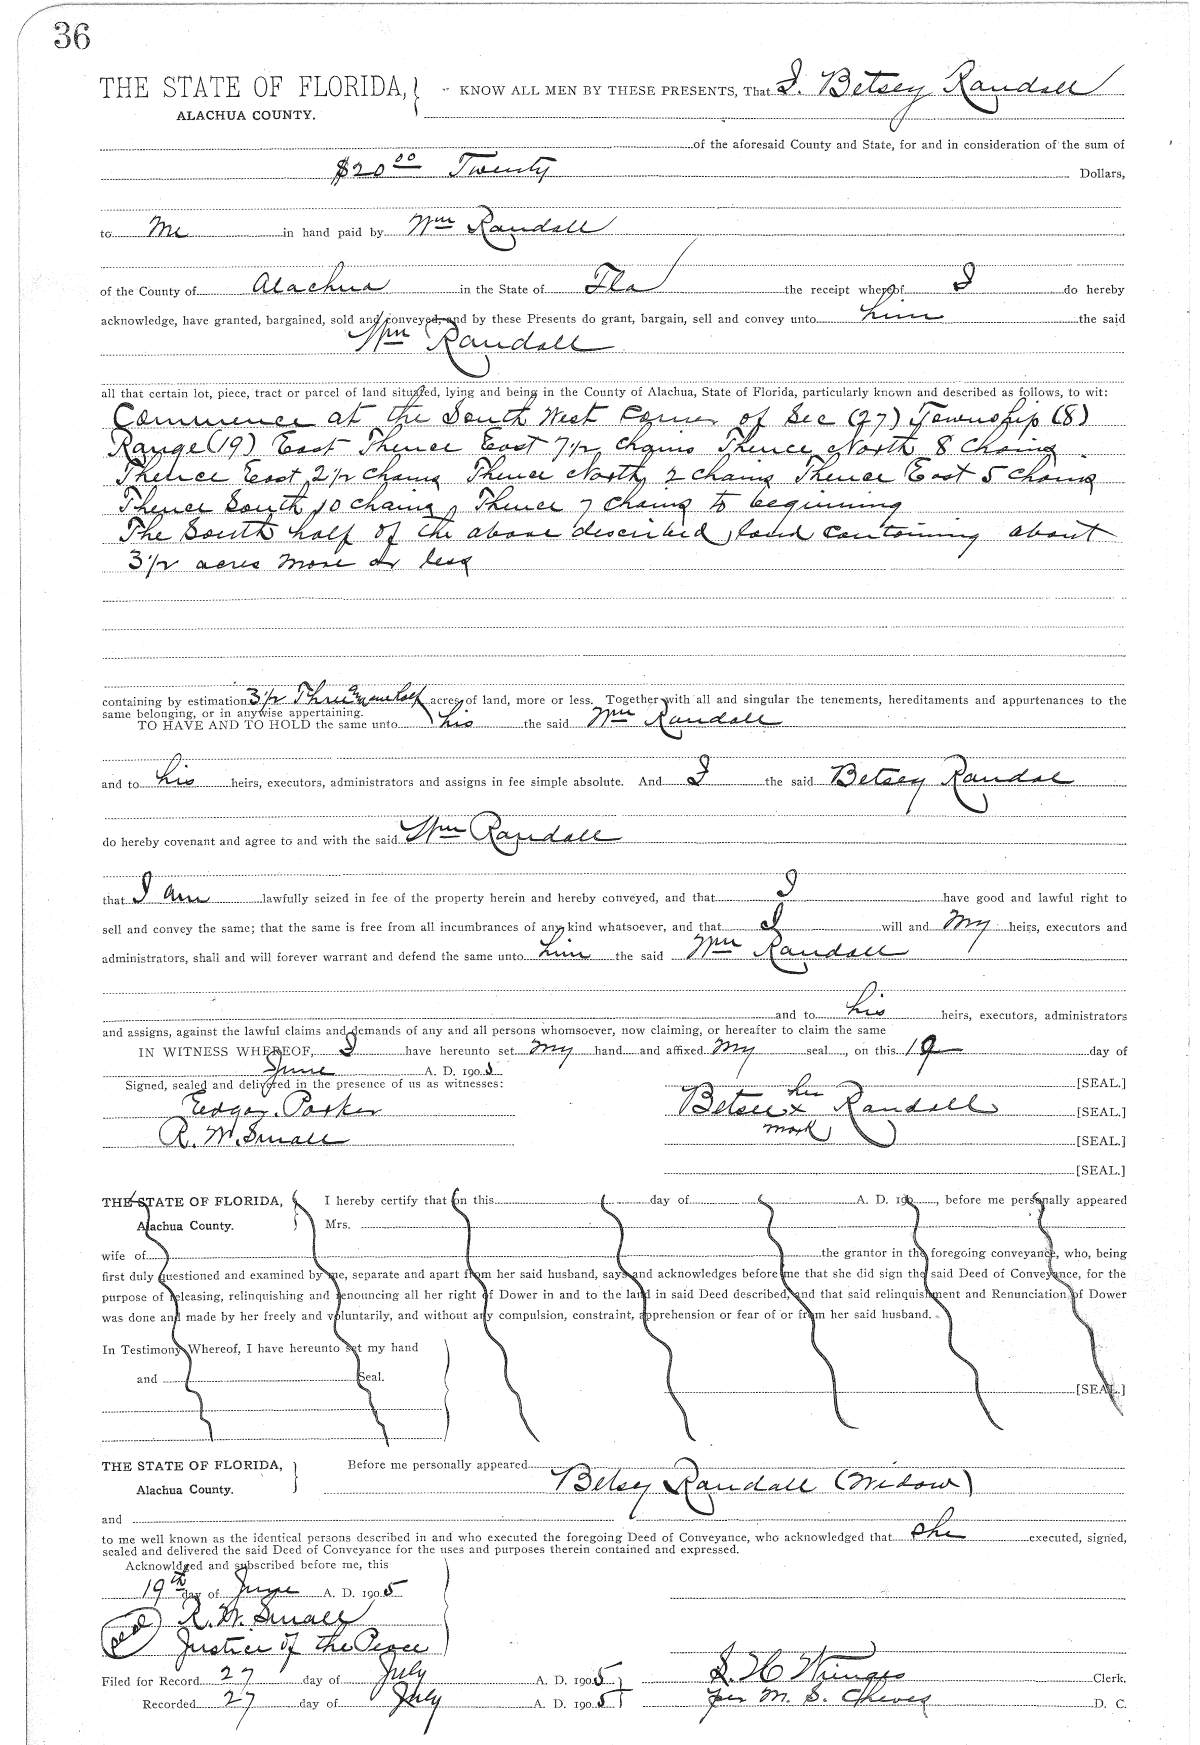 36
THE STATE OF FLORIDA, KNOW ALL MEN BY THESE PRESENTS, That I. Betsey Randall
ALACHUA COUNTY.
of the aforesaid County and State, for and in consideration of the sum of
$20 00 Twenty Dollars,
to Me in hand paid by Wm Randall
of the County of Alachua in the State of Fla the receipt whereof I do hereby
acknowledge, have granted, bargained, sold and conveyed, and by these Presents do grant, bargain, sell and convey unto him the said
Wm Randall
all that certain lot, piece, tract or parcel of land situated, lying and being in the County of Alachua, State of Florida, particularly known and described as follows, to wit:
Commence at the South West Corner of Sec (27) Township (8)
Range (19) East Thence East 7 1/2 chains Thence North 8 Chains
Thence East 2 1/2 chains Thence North 2 chains Thence East 5 chains
Thence South 10 chains, Thence 7 chains to beginning
The South half of the above described land containing about
3 1/2 acres more or less
containing by estimation 3 1/2 Three an one half acres of land, more or less. Together with all and singular the tenements, hereditaments and appurtenances to the
same belonging, or in anywise appertaining.
TO HAVE AND TO HOLD the same unto his the said Wm Randall
and to his heirs, executors, administrators and assigns in fee simple absolute. And I the said Betsey Randal
do hereby covenant and agree to and with the said Wm Randall
that I am lawfully seized in fee of the property herein and hereby conveyed, and that I have good and lawful right to
sell and convey the same; that the same is free from all incumbrances of any kind whatsoever, and that I will and My heirs, executors and
administrators, shall and will forever warrant and defend the same unto him the said Wm Randall
and to his heirs, executors, administrators
and assigns, against the lawful claims and demands of any and all persons whomsoever, now claiming, or hereafter to claim the same
IN WITNESS WHEREOF, I have hereunto set my hand and affixed My seal, on this 19 day of
June A. D. 1905
Signed, sealed and delivered in the presence of us as witnesses: [SEAL.]
Edgar Parker Betsee her x mark Randall [SEAL.]
R. W. Small [SEAL.]
[SEAL.]
THE STATE OF FLORIDA, I hereby certify that on this day of A. D. 190 , before me personally appeared
Alachua County. Mrs.
wife of the grantor in the foregoing conveyance, who, being
first duly questioned and examined by me, separate and apart from her said husband, says and acknowledges before me that she did sign the said Deed of Conveyance, for the
purpose of releasing, relinquishing and renouncing all her right of Dower in and to the land in said Deed described, and that said relinquishment and Renunciation of Dower
was done and made by her freely and voluntarily, and without any compulsion, constraint, apprehension or fear of or from her said husband.
In Testimony Whereof, I have hereunto set my hand
and Seal. [SEAL.]
THE STATE OF FLORIDA, Before me personally appeared
Alachua County. Betsy Randall (Widow)
and
to me well known as the identical persons described in and who executed the foregoing Deed of Conveyance, who acknowledged that she executed, signed,
sealed and delivered the said Deed of Conveyance for the uses and purposes therein contained and expressed.
Acknowldged and subscribed before me, this
19th day of June A. D. 1905
seal R. W. Small
Justice of the Peace
Filed for Record 27 day of July A. D. 1905 S. H. Wienges Clerk.
Recorded 27 day of July A. D. 1905 per M. S. Cheves D. C.